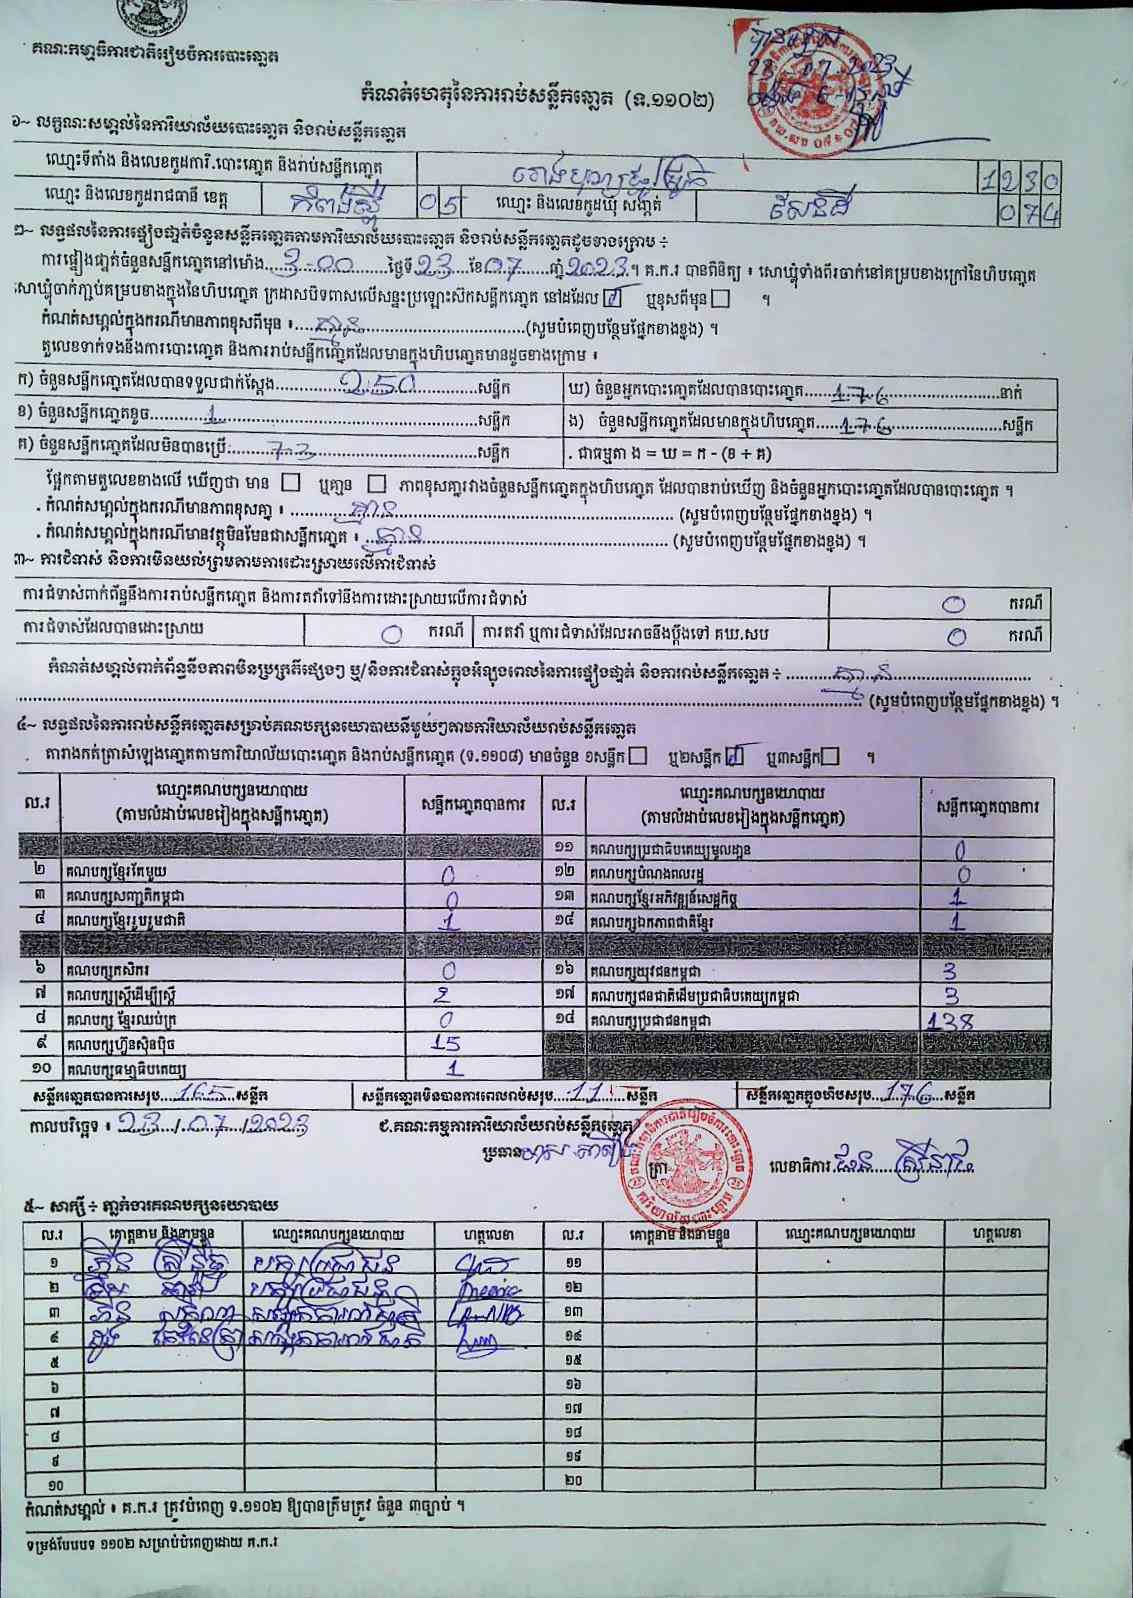 គណៈកម្មាធិការជាតិរៀបចំការបោះឆ្នោត
23 07 2023
កំណត់ហេតុនៃការរាប់សន្លឹកឆ្នោត (ទ.១១០២)
១~ លក្ខណៈសម្គាល់នៃការិយាល័យបោះឆ្នោត និងរាប់សន្លឹកឆ្នោត
ឈ្មោះទីតាំង និងលេខកូដការិ.បោះឆ្នោត និងរាប់សន្លឹកឆ្នោត 1230
ឈ្មោះ និងលេខកូដរាជធានី ខេត្ត កំពង់ស្ពឺ 05 ឈ្មោះ និងលេខកូដឃុំ សង្កាត់ 074
២~ លទ្ធផលនៃការផ្ទៀងផ្ទាត់ចំនួនសន្លឹកឆ្នោតតាមការិយាល័យបោះឆ្នោត និងរាប់សន្លឹកឆ្នោតដូចខាងក្រោម ÷
ការផ្ទៀងផ្ទាត់ចំនួនសន្លឹកឆ្នោតនៅម៉ោង 3-00 ថ្ងៃទី 23 ខែ 07 ឆ្នាំ 2023 ។ គ.ក.រ បានពិនិត្យ ៖ សោឃ្លុំទាំងពីរចាក់នៅគម្របខាងក្រៅនៃហិបឆ្នោត
សោឃ្លុំចាក់ភ្ជាប់គម្របខាងក្នុងនៃហិបឆ្នោត ក្រដាសបិទពាសលើសន្ទះប្រឡោះស៊កសន្លឹកឆ្នោត នៅដដែល ឬខុសពីមុន ។
កំណត់សម្គាល់ក្នុងករណីមានភាពខុសពីមុន ៖ គ្មាន (សូមបំពេញបន្ថែមផ្នែកខាងខ្នង) ។
តួលេខទាក់ទងនឹងការបោះឆ្នោត និងការរាប់សន្លឹកឆ្នោតដែលមានក្នុងហិបឆ្នោតមានដូចខាងក្រោម ៖
ក) ចំនួនសន្លឹកឆ្នោតដែលបានទទួលជាក់ស្តែង 250 សន្លឹក ឃ) ចំនួនអ្នកបោះឆ្នោតដែលបានបោះឆ្នោត 176 នាក់
ខ) ចំនួនសន្លឹកឆ្នោតខូច 1 សន្លឹក ង) ចំនួនសន្លឹកឆ្នោតដែលមានក្នុងហិបឆ្នោត 176 សន្លឹក
គ) ចំនួនសន្លឹកឆ្នោតដែលមិនបានប្រើ 73 សន្លឹក . ជាធម្មតា ង = ឃ = ក - (ខ + គ)
ផ្អែកតាមតួលេខខាងលើ ឃើញថា មាន ឬគ្មាន ភាពខុសគ្នារវាងចំនួនសន្លឹកឆ្នោតក្នុងហិបឆ្នោត ដែលបានរាប់ឃើញ និងចំនួនអ្នកបោះឆ្នោតដែលបានបោះឆ្នោត ។
. កំណត់សម្គាល់ក្នុងករណីមានភាពខុសគ្នា ៖ គ្មាន (សូមបំពេញបន្ថែមផ្នែកខាងខ្នង) ។
. កំណត់សម្គាល់ក្នុងករណីមានវត្ថុមិនមែនជាសន្លឹកឆ្នោត ៖ គ្មាន (សូមបំពេញបន្ថែមផ្នែកខាងខ្នង) ។
៣~ ការជំទាស់ និងការមិនយល់ព្រមតាមការដោះស្រាយលើការជំទាស់
ការជំទាស់ពាក់ព័ន្ធនឹងការរាប់សន្លឹកឆ្នោត និងការតវ៉ាទៅនឹងការដោះស្រាយលើការជំទាស់ 0 ករណី
ការជំទាស់ដែលបានដោះស្រាយ 0 ករណី ការតវ៉ា ឬការជំទាស់ដែលអាចនឹងប្តឹងទៅ គឃ.សប 0 ករណី
កំណត់សម្គាល់ពាក់ព័ន្ធនឹងភាពមិនប្រក្រតីផ្សេងៗ ឬ/និងការជំទាស់ក្នុងអំឡុងពេលនៃការផ្ទៀងផ្ទាត់ និងការរាប់សន្លឹកឆ្នោត ÷ គ្មាន
(សូមបំពេញបន្ថែមផ្នែកខាងខ្នង) ។
៤~ លទ្ធផលនៃការរាប់សន្លឹកឆ្នោតសម្រាប់គណបក្សនយោបាយនីមួយៗតាមការិយាល័យរាប់សន្លឹកឆ្នោត
តារាងកត់ត្រាសំឡេងឆ្នោតតាមការិយាល័យបោះឆ្នោត និងរាប់សន្លឹកឆ្នោត (ទ.១១០៨) មានចំនួន ១សន្លឹក ឬ២សន្លឹក ឬ៣សន្លឹក ។
ល.រ ឈ្មោះគណបក្សនយោបាយ (តាមលំដាប់លេខរៀងក្នុងសន្លឹកឆ្នោត) សន្លឹកឆ្នោតបានការ ល.រ ឈ្មោះគណបក្សនយោបាយ (តាមលំដាប់លេខរៀងក្នុងសន្លឹកឆ្នោត) សន្លឹកឆ្នោតបានការ
១១ គណបក្សប្រជាធិបតេយ្យមូលដ្ឋាន 0
២ គណបក្សខ្មែរតែមួយ 0 ១២ គណបក្សបំណងពលរដ្ឋ 0
៣ គណបក្សសញ្ជាតិកម្ពុជា 0 ១៣ គណបក្សខ្មែរអភិវឌ្ឍន៍សេដ្ឋកិច្ច 1
៤ គណបក្សខ្មែររួបរួមជាតិ 1 ១៤ គណបក្សឯកភាពជាតិខ្មែរ 1
៦ គណបក្សកសិករ 0 ១៦ គណបក្សយុវជនកម្ពុជា 3
៧ គណបក្សស្ត្រីដើម្បីស្ត្រី 2 ១៧ គណបក្សជនជាតិដើមប្រជាធិបតេយ្យកម្ពុជា 3
៨ គណបក្ស ខ្មែរឈប់ក្រ 0 ១៨ គណបក្សប្រជាជនកម្ពុជា 138
៩ គណបក្សហ្វ៊ុនស៊ិនប៉ិច 15
១០ គណបក្សធម្មាធិបតេយ្យ 1
សន្លឹកឆ្នោតបានការសរុប 165 សន្លឹក សន្លឹកឆ្នោតមិនបានការពេលរាប់សរុប 11 សន្លឹក សន្លឹកឆ្នោតក្នុងហិបសរុប 176 សន្លឹក
កាលបរិច្ឆេទ ៖ 23/07/2023 ជ.គណៈកម្មការការិយាល័យរាប់សន្លឹកឆ្នោត
ប្រធាន ត្រា លេខាធិការ
៥~ សាក្សី ÷ ភ្នាក់ងារគណបក្សនយោបាយ
ល.រ គោត្តនាម និងនាមខ្លួន ឈ្មោះគណបក្សនយោបាយ ហត្ថលេខា ល.រ គោត្តនាម និងនាមខ្លួន ឈ្មោះគណបក្សនយោបាយ ហត្ថលេខា
១ ១១
២ ១២
៣ ១៣
៤ ១៤
៥ ១៥
៦ ១៦
៧ ១៧
៨ ១៨
៩ ១៩
១០ ២០
កំណត់សម្គាល់ ៖ គ.ក.រ ត្រូវបំពេញ ទ.១១០២ ឱ្យបានត្រឹមត្រូវ ចំនួន ៣ច្បាប់ ។
ទម្រង់បែបបទ ១១០២ សម្រាប់បំពេញដោយ គ.ក.រ